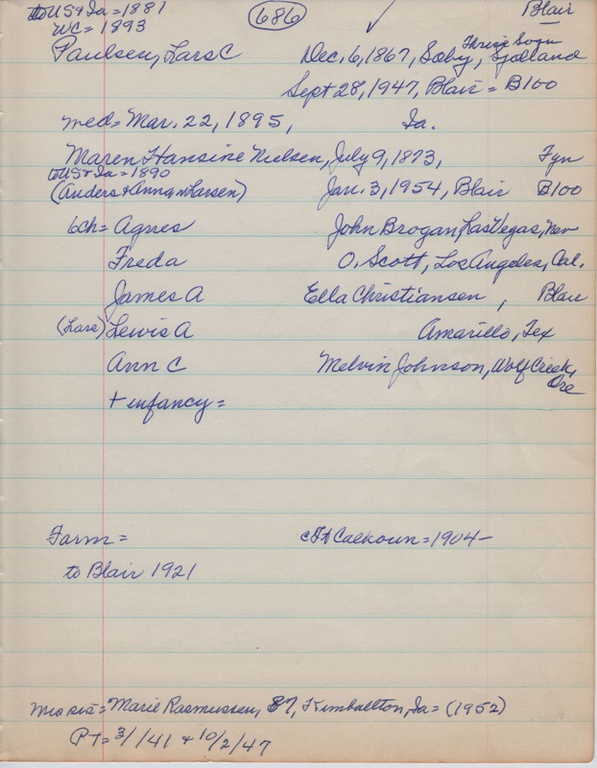 to US + Ia = 1881 (686) ✓ Blair
WC = 1893
Paulsen, Lars C Dec. 6, 1867, Soeby, Thrise Sogn Sjelland
Sept 28, 1947, Blair = B100
med = Mar. 22, 1895, Ia.
Maren Hansine Nielsen, July 9, 1873, Fyn
to US + Ia = 1890
(Anders + Anna Larsen) Jan. 3, 1954, Blair B100
6ch = Agnes John Brogan, Las Vegas, Nev
Freda O. Scott, Los Angeles, Cal.
James A Ella Christiansen, Blair
(Lars) Lewis A Amarillo, Tex
Ann C Melvin Johnson, Wolf Creek, Ore
+ infancy =
Farm = Ft Calhoun = 1904-
to Blair 1921
Mrs sis = Marie Rasmussen, 87, Kimballton, Ia = (1952)
PT = 3/1/41 + 10/2/47